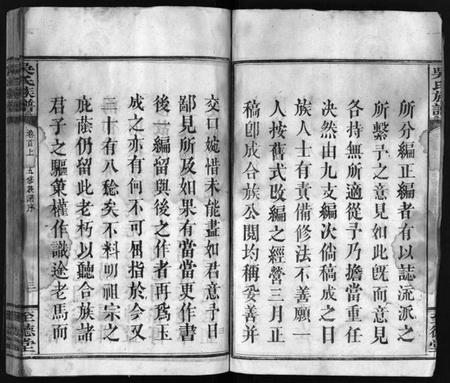 吳氏族譜
所分編正編者有以誌流派之
所繫予之意見如此旣而意見
各持無所適從予乃擔當重任
決然由九支編次倘稿成之日
族人士有責備修法不善願一
人按舊式改編之經營三月正
稿卽成合族公閱均稱妥善并
至德堂
交口婉惜未能盡如君意予曰
鄙見所及如果有當當更作書
後一編留與後之作者再爲玉
成之亦有何不可屈指於今又
三十有八稔矣不料明祖宗之
庇蔭仍留此老朽以聽合族諸
君子之驅策權作識途老馬而
吳氏族譜
卷首上
五修族譜序
三
至德堂